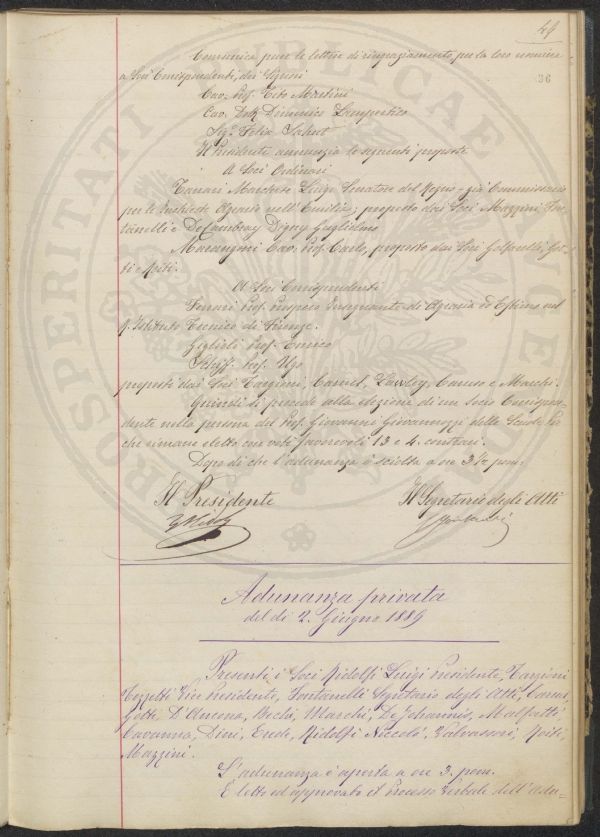 49
36
Comunica pure le lettere di ringraziamento per la loro nomina
a Soci Corrispondenti, dei Signori
Cav. Prof. Tito Martini
Cav. Dott. Domenico Lampertico
Sig. Felix Sahut
Il Presidente annunzia le seguenti proposte
A Soci Ordinari
Tanari Marchese Luigi Senatore del Regno - già Commissario
per le Inchieste Agrarie nell'Emilia; proposto dai Soci Mazzini Fon-
tanelli e De Cambray Digny Guglielmo
Marangoni Cav. Prof. Carlo, proposto dai Soci Golfarelli, Got-
ti e Roiti.
A Soci Corrispondenti
Ferrari Prof. Prospero Insegnante di Agraria ed Estimo nel
R. Istituto Tecnico di Firenze.
Giglioli Prof. Enrico
Schiff Prof. Ugo
proposti dai Soci Targioni, Caruel, Lawley, Caruso e Marchi.
Quindi si procede alla elezione di un Socio Corrispon-
dente nella persona del Prof. Giovanni Giovannozzi delle Scuole Pie
che rimane eletto con voti favorevoli 13 e 4 contrari.
Dopo di che l'adunanza è sciolta a ore 3 1/2 pom.
Il Presidente
Il Segretario degli Atti
Adunanza privata
del dì 2. Giugno 1889
Presenti i Soci Ridolfi Luigi Presidente, Targioni
Tozzetti Vice Presidente, Fontanelli Segretario degli Atti,
Gotti, D'Ancona, Marchi, De Johannis, Malfatti
Cavanna, Dini, Erede, Ridolfi Niccolò, Valvassori, Roiti,
Mazzini.
L'adunanza è aperta a ore 3. pom.
È letto ed approvato il Processo Verbale dell'adu-
PROSPERITATI PUBLICAE